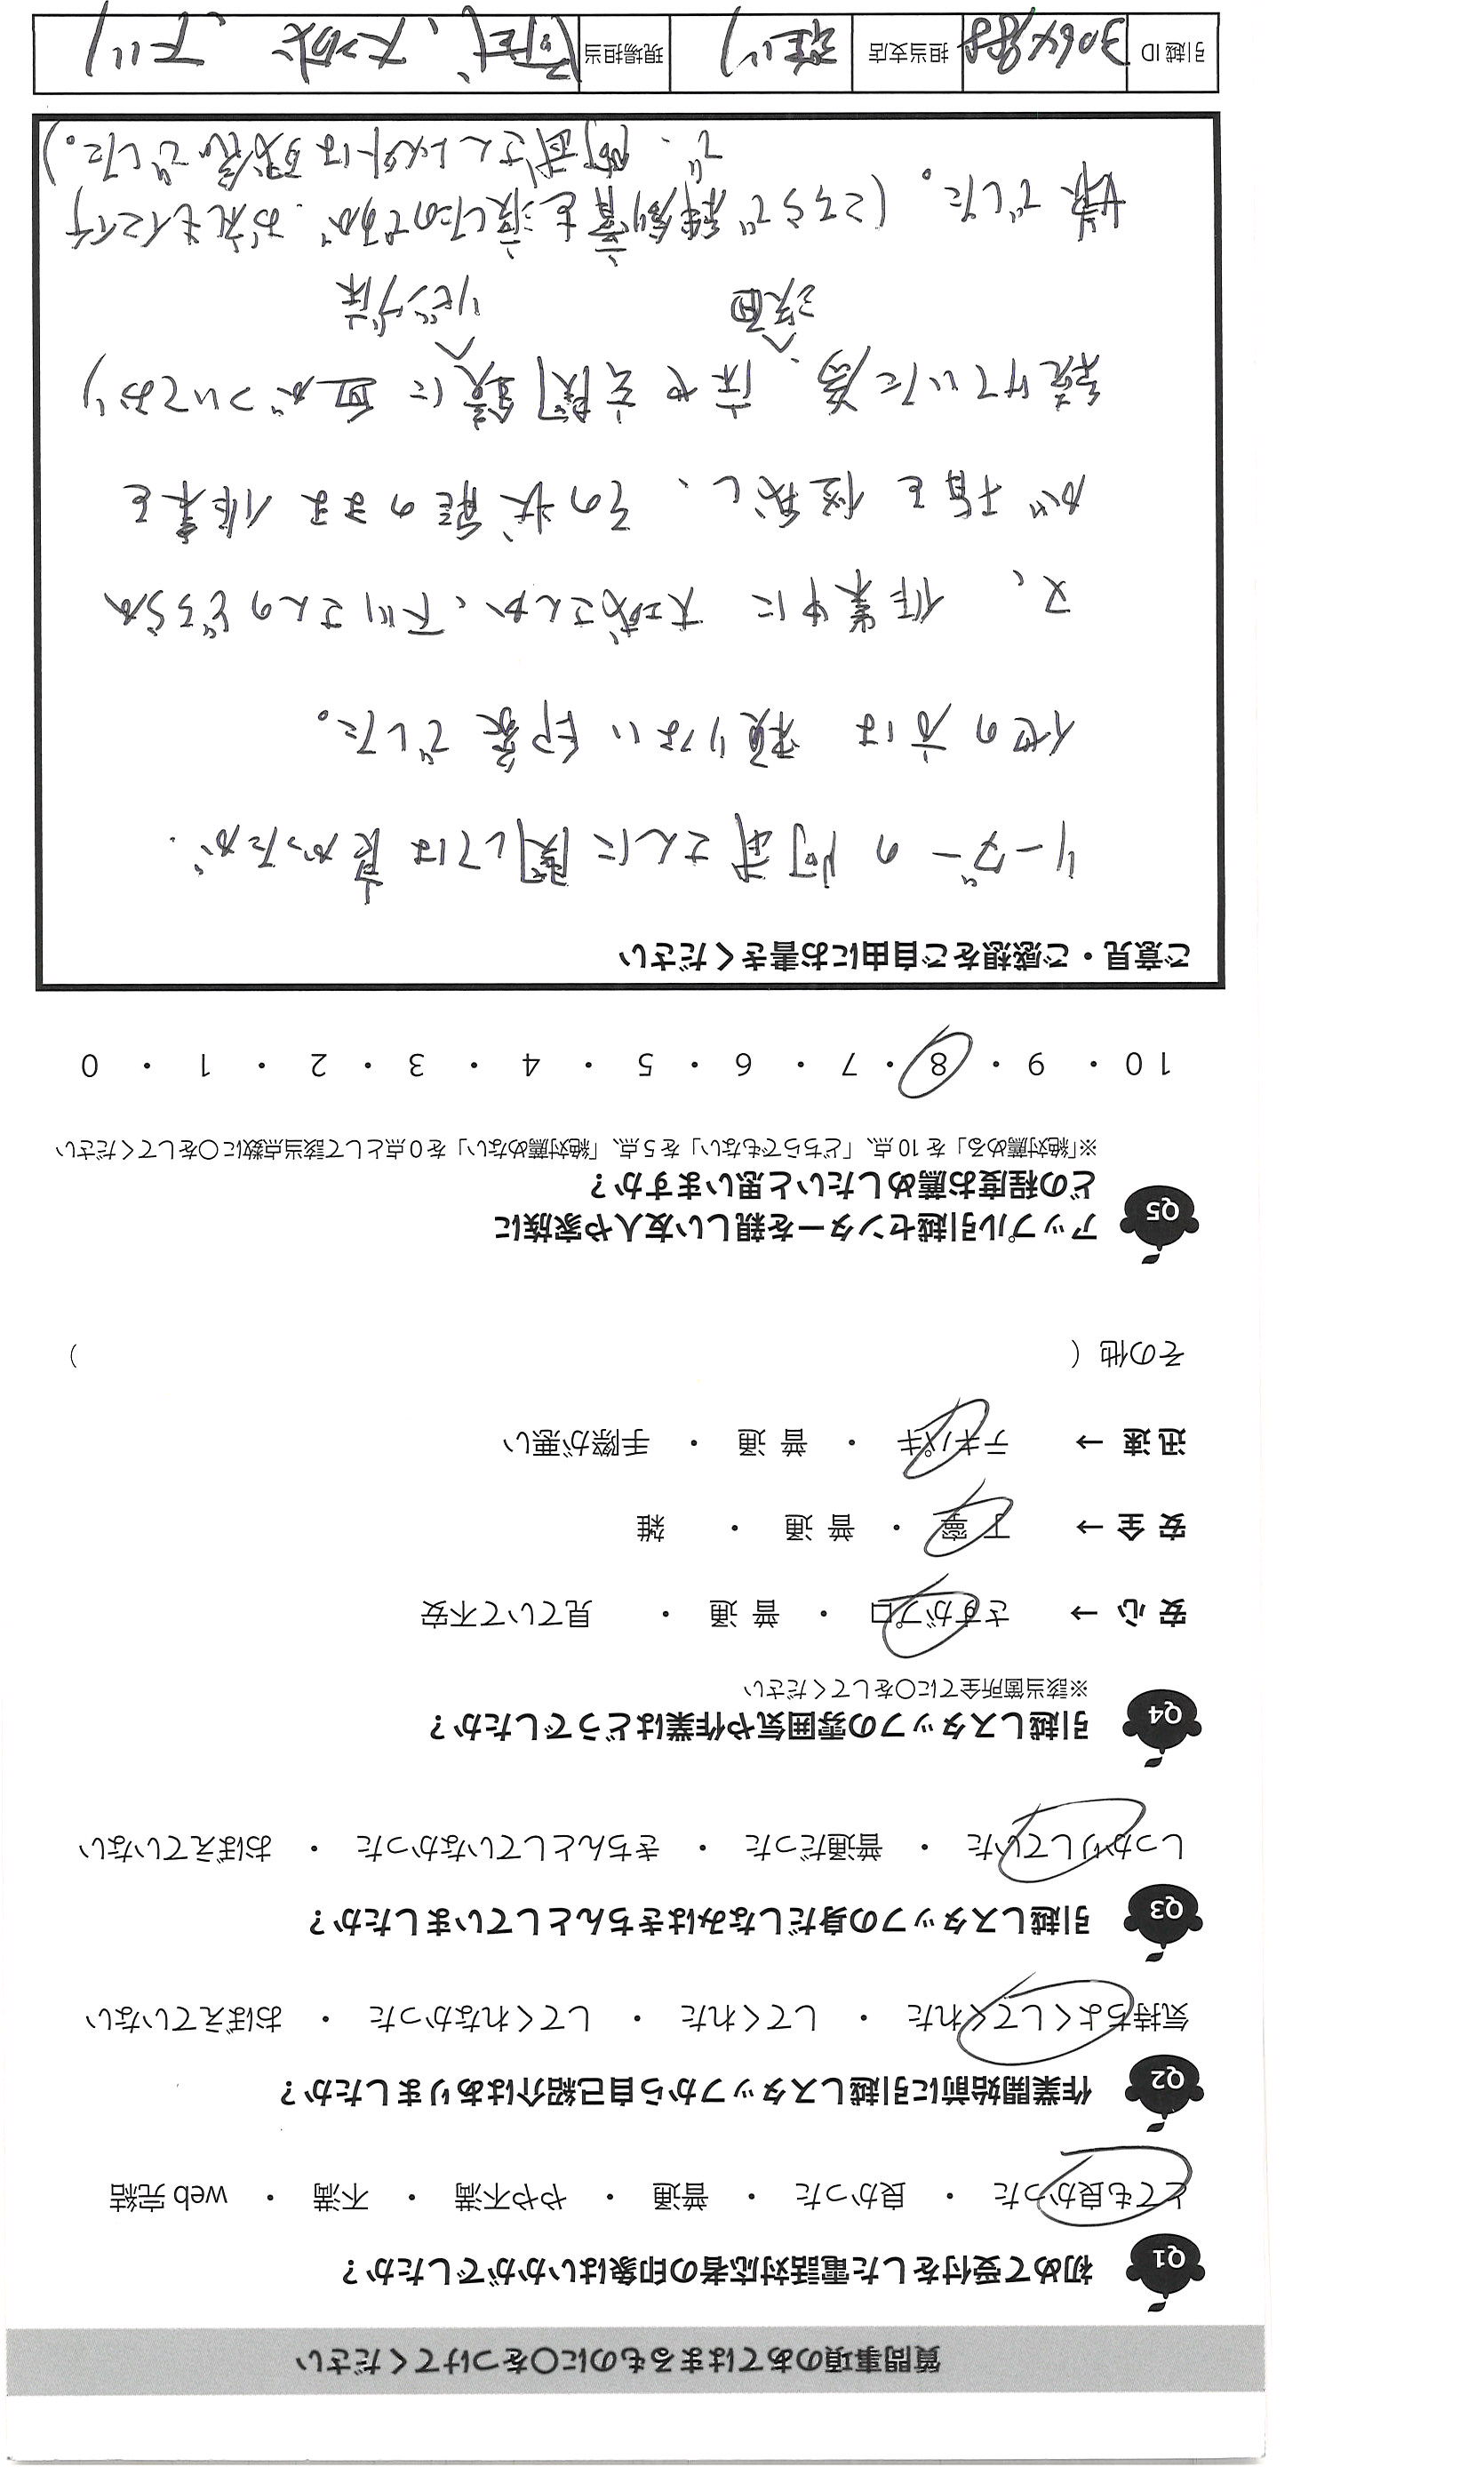 質問事項のあてはまるものに〇をつけてください
Q1 初めて受付をした電話対応者の印象はいかがでしたか？
とても良かった ・ 良かった ・ 普通 ・ やや不満 ・ 不満 ・ web 完結
Q2 作業開始前に引越しスタッフから自己紹介はありましたか？
気持ちよくしてくれた ・ してくれた ・ してくれなかった ・ おぼえていない
Q3 引越しスタッフの身だしなみはきちんとしていましたか？
しっかりしていた ・ 普通だった ・ きちんとしていなかった ・ おぼえていない
Q4 引越しスタッフの雰囲気や作業はどうでしたか？
※該当箇所全てに〇をしてください
安 心 → さすがプロ ・ 普 通 ・ 見ていて不安
安 全 → 丁 寧 ・ 普 通 ・ 雑
迅 速 → テキパキ ・ 普 通 ・ 手際が悪い
その他 ( )
Q5 アップル引越センターを親しい友人や家族に
どの程度お薦めしたいと思いますか？
※「絶対薦める」を 10 点、「どちらでもない」を 5 点、「絶対薦めない」を 0 点として該当点数に〇をしてください
10 ・ 9 ・ 8 ・ 7 ・ 6 ・ 5 ・ 4 ・ 3 ・ 2 ・ 1 ・ 0
ご意見・ご感想をご自由にお書きください
リーダーの阿武さんに関しては良かったが、
他の方は頼りない印象でした。
又、作業中に大城さんか、下川さんのどちらか
が指を怪我し、その状態のまま作業を
続けていた為、床や玄関鏡に血がついており
洗面 リビング床
嫌でした。(こちらで絆創膏を渡したのですが、お礼もイマイチ
で、阿武さん以外は残念でした。)
引越 ID 担当支店 現場担当 阿武、大城、下川